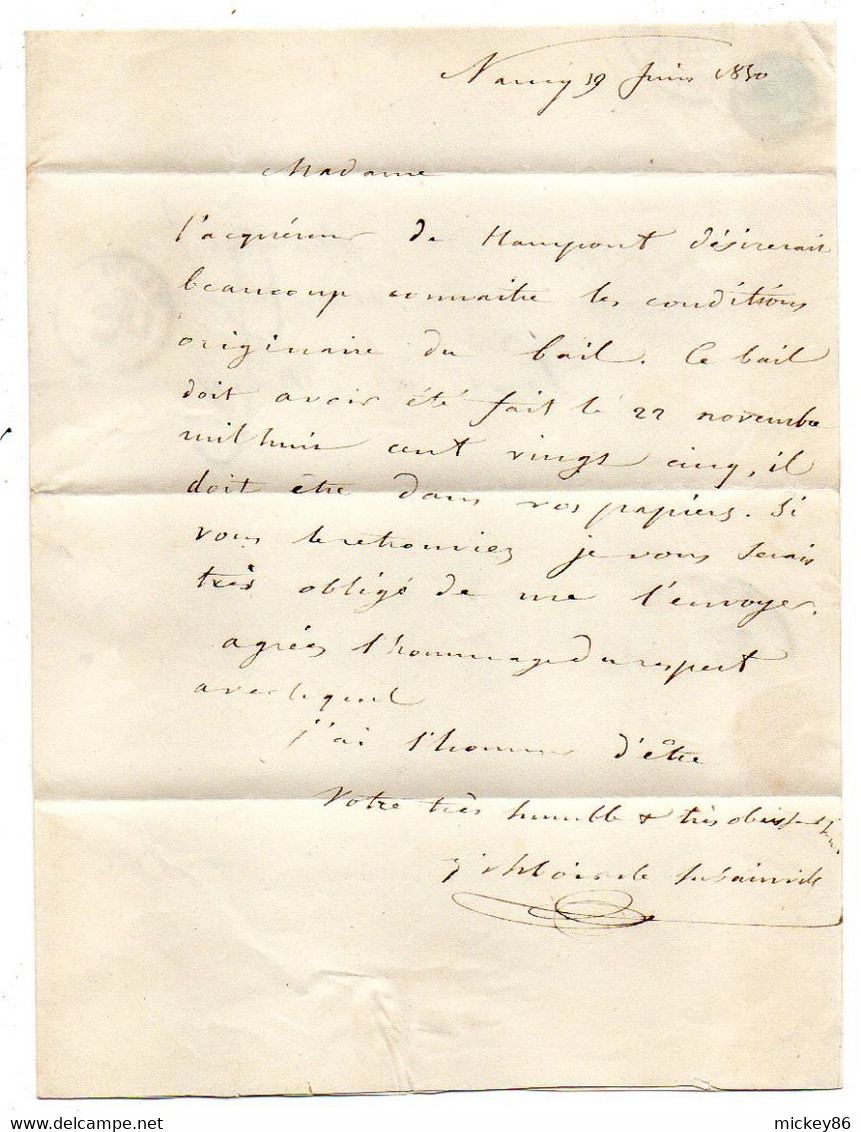 Nancy 19 Juin 1850
Madame
l'acquéreur de Hampont désirerait
beaucoup connaitre les conditions
originaire du bail. Ce bail
doit avoir été fait le 22 novembre
mil huit cent vingt cinq, il
doit être dans vos papiers. Si
vous le retrouviez je vous serais
très obligé de me l'envoyer.
agréez l'hommage du respect
avec lequel
j'ai l'honneur d'être
Votre très humble & très obéissant
mickey86